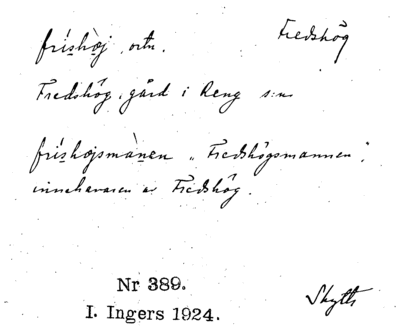 fríshòj, ortn. Fredshög
Fredshög, gård i Reng s:n
fríshojsmànen „Fredshögsmannen”,
innehavaren av Fredshög.
Nr 389.
I. Ingers 1924.
Skytts